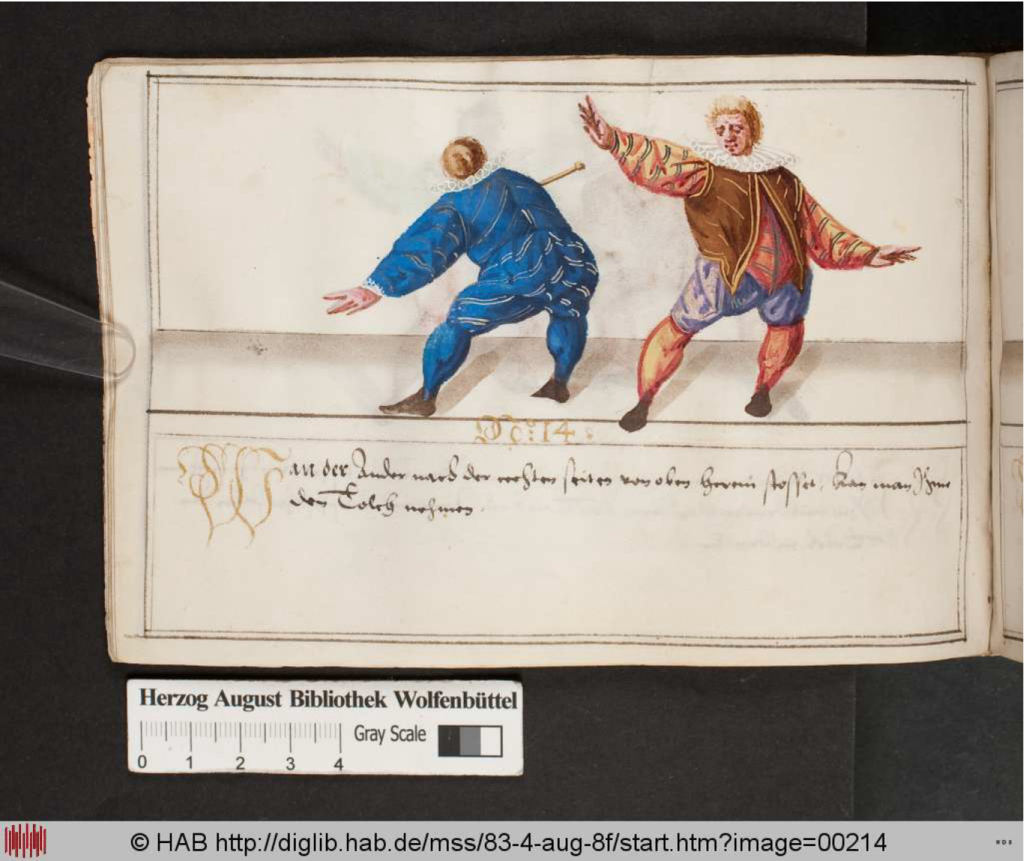 No: 14.
Wan der Ander nach der rechten seiten von oben herein stosset, kan man Ihme
den Tolch nehmen.
Herzog August Bibliothek Wolfenbüttel
Gray Scale
0 1 2 3 4
© HAB http://diglib.hab.de/mss/83-4-aug-8f/start.htm?image=00214